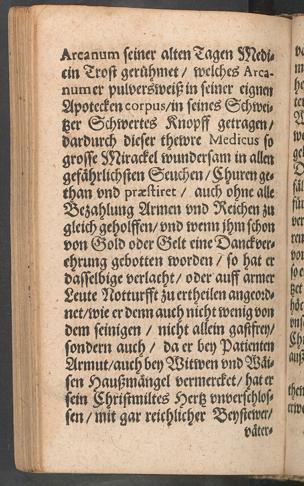 Arcanum seiner alten Tagen Medi-
cin Trost gerühmet / welches Arca-
num er pulversweiß in seiner eignen
Apotecken corpus/in seines Schwei-
tzer Schwertes Knopff getragen/
dardurch dieser thewre Medicus so
grosse Mirackel wundersam in allen
gefährlichsten Seuchen/Churen ge-
than vnd præstiret / auch ohne alle
Bezahlung Armen vnd Reichen zu
gleich geholffen/vnd wenn jhm schon
von Gold oder Gelt eine Danckver-
ehrung gebotten worden / so hat er
dasselbige verlacht/ oder auff armer
Leute Notturfft zu ertheilen angeord-
net/wie er denn auch nicht wenig von
dem seinigen / nicht allein gastfrey/
sondern auch / da er bey Patienten
Armut/auch bey Witwen vnd Wäi-
sen Haußmängel vermercket/ hat er
sein Christmiltes Hertz vnverschlos-
sen/ mit gar reichlicher Beystewer/
väter-